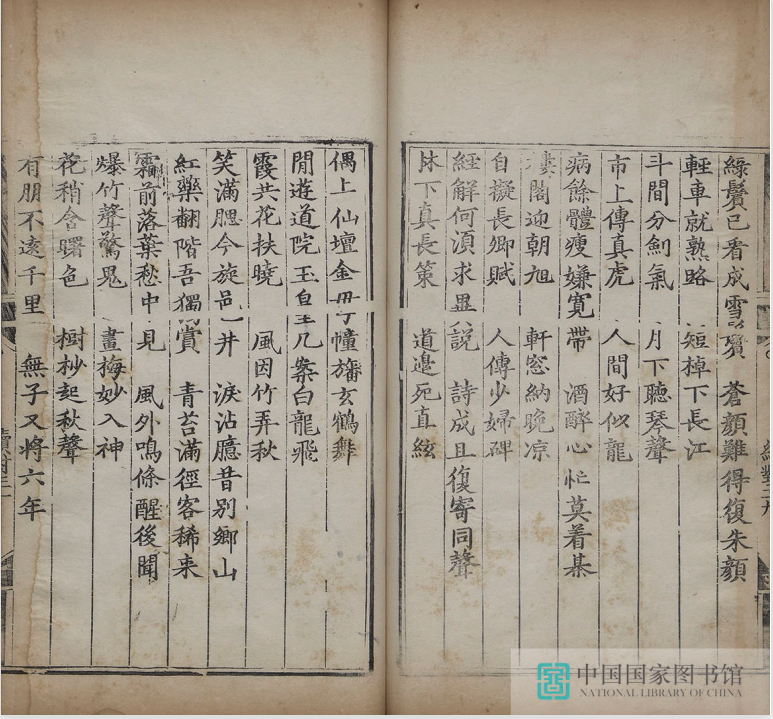 綠鬢已看成雪鬢 蒼顏難得復朱顏
輕車就熟路 短棹下長江
斗間分劍氣 月下聽琴聲
市上傳真虎 人間好似龍
病餘體瘦嫌寬帶 酒醉心忙莫着棊
樓閣迎朝旭 軒窓納晚凉
自擬長卿賦 人傳少婦碑
經解何湏求異說 詩成且復寄同聲
牀下真長策 道邊死直絃
偶上仙壇金冊 幢旛玄鶴舞
閒遊道院玉皇 几案白龍飛
霞共花扶曉 風因竹弄秋
笑滿腮今旋邑井 淚沾臆昔別鄉山
紅藥翻階吾獨賞 青苔滿徑客稀来
霜前落葉愁中見 風外鳴條醒後聞
爆竹聲驚鬼 畫梅妙入神
花稍含曙色 樹杪起秋聲
有朋不遠千里 無子又將六年
中国国家图书馆
NATIONAL LIBRARY OF CHINA